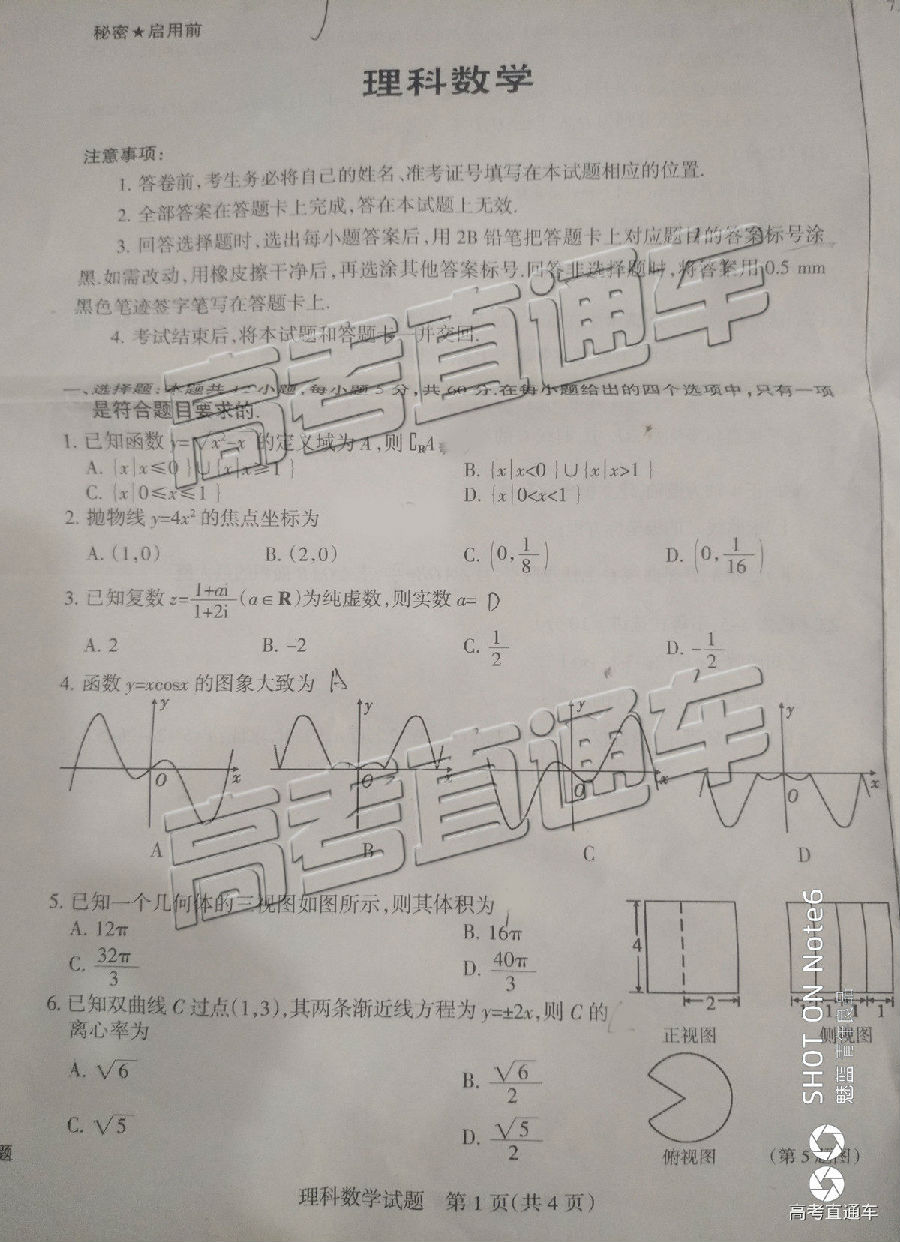 秘密★启用前
理科数学
注意事项:
1. 答卷前,考生务必将自己的姓名、准考证号填写在本试题相应的位置.
2. 全部答案在答题卡上完成,答在本试题上无效.
3. 回答选择题时,选出每小题答案后,用 2B 铅笔把答题卡上对应题目的答案标号涂
黑.如需改动,用橡皮擦干净后,再选涂其他答案标号.回答非选择题时,将答案用 0.5 mm
黑色笔迹签字笔写在答题卡上.
4. 考试结束后,将本试题和答题卡一并交回.
一、选择题:本题共 12 小题,每小题 5 分,共 60 分.在每小题给出的四个选项中,只有一项
是符合题目要求的.
1. 已知函数 y=√x²-x 的定义域为 A,则 ∁RA=
A. {x|x≤0}∪{x|x≥1} B. {x|x<0}∪{x|x>1}
C. {x|0≤x≤1} D. {x|0<x<1}
2. 抛物线 y=4x² 的焦点坐标为
A. (1,0) B. (2,0) C. (0,1/8) D. (0,1/16)
3. 已知复数 z=(1+ai)/(1+2i) (a∈R)为纯虚数,则实数 a= D
A. 2 B. -2 C. 1/2 D. -1/2
4. 函数 y=xcosx 的图象大致为 A
y y y y
O x O x O x O x
A B C D
5. 已知一个几何体的三视图如图所示,则其体积为
A. 12π B. 16π
C. 32π/3 D. 40π/3
4 2 1 1 1 1
正视图 侧视图
俯视图 (第 5 题图)
6. 已知双曲线 C 过点(1,3),其两条渐近线方程为 y=±2x,则 C 的
离心率为
A. √6 B. √6/2
C. √5 D. √5/2
题
理科数学试题 第 1 页(共 4 页)
高考直通车
高考直通车
SHOT ON Note6
魅蓝 青年良品
高考直通车